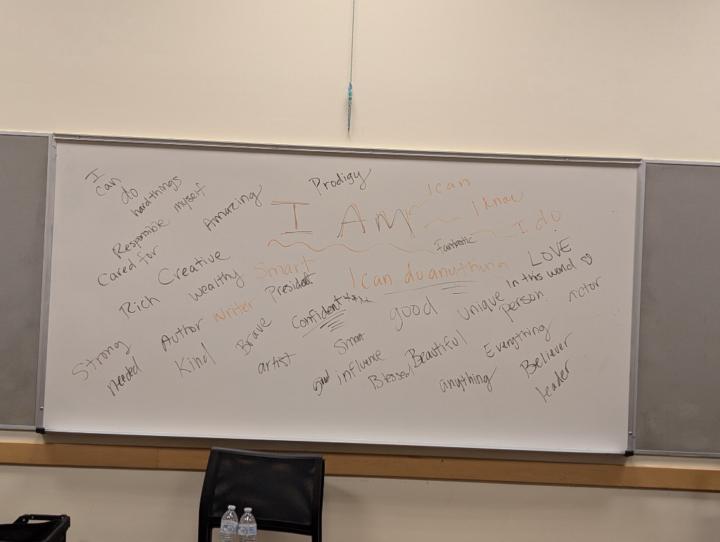 I can do hard things
Prodigy
I can
I AM
I know
I do
Responsible myself
Amazing
Cared for
Creative
Fantastic
LOVE
Rich
Wealthy
Smart
I can do anything
in this world ♡
President
Writer
Confident
good
Unique
person
Author
Brave
Strong
Kind
Smart
Needed
artist
influence
Blessed
Beautiful
Everything
anything
Believer
leader